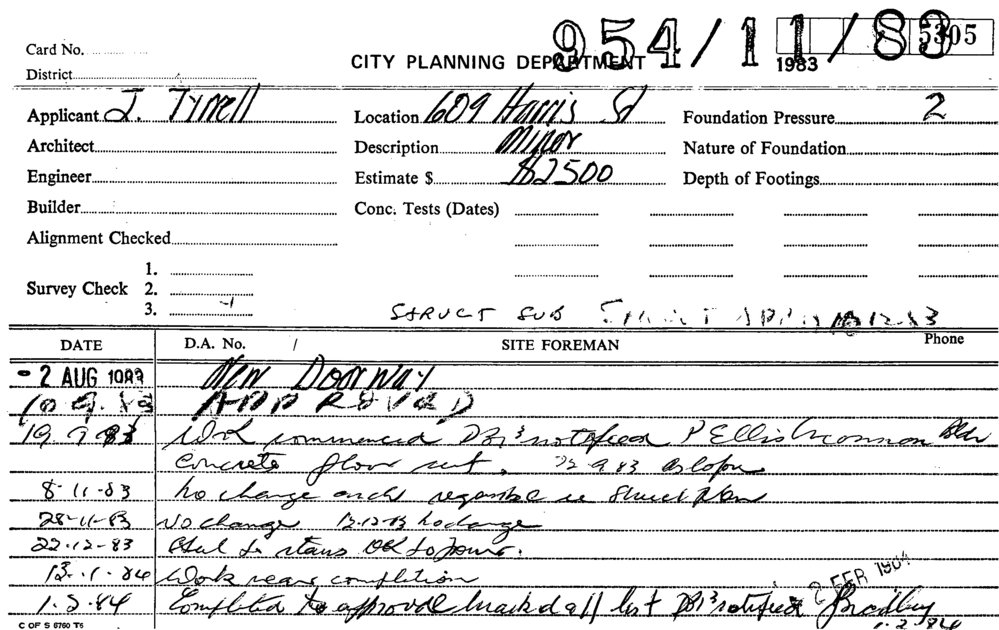 954/11/83
5305
1983
Card No.
CITY PLANNING DEPARTMENT
District
Applicant J. Tyrrell
Location 609 Harris St
Foundation Pressure 2
Architect
Description Minor
Nature of Foundation
Engineer
Estimate $ $2500
Depth of Footings
Builder
Conc. Tests (Dates)
Alignment Checked
Survey Check
1.
2.
3.
STRUCT SUB 12-83
DATE D.A. No. SITE FOREMAN Phone
- 2 AUG 1983 New Doorway
10 9 83 APPROVED
19 9 83 Work commenced notified P Ellis
Concrete floor cut. 22-9-83
8-11-83 No change
28-11-83 No change 13-12-83 No change
22-12-83 to stairs OK to pour.
13-1-84 Work nears completion
2 FEB 1984
1-2-84 Completed to approval notified Bradley
1-2-84
C OF S 6760 T6